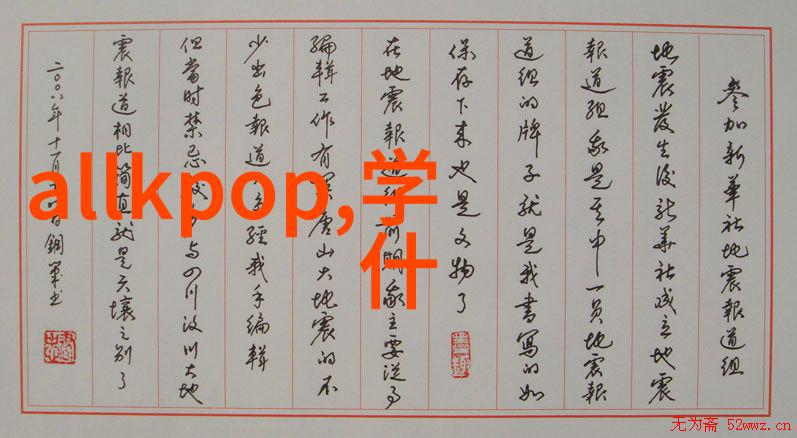 参加新华社地震報道组
地震发生後新华社成立地震
報道组我是其中一员地震報
道组的牌子就是我書寫的如
保存下来也是文物了
在地震報道组前期我主要从事
编辑工作有関唐山大地震的不
少出色報道
经我手编辑
但當时禁忌
与四川汶川大地
震報道相比简直就是天壤之别了
二〇〇八年十一月
日鋼笔书
allkpop,学
什
无为斋 52wwz.cn